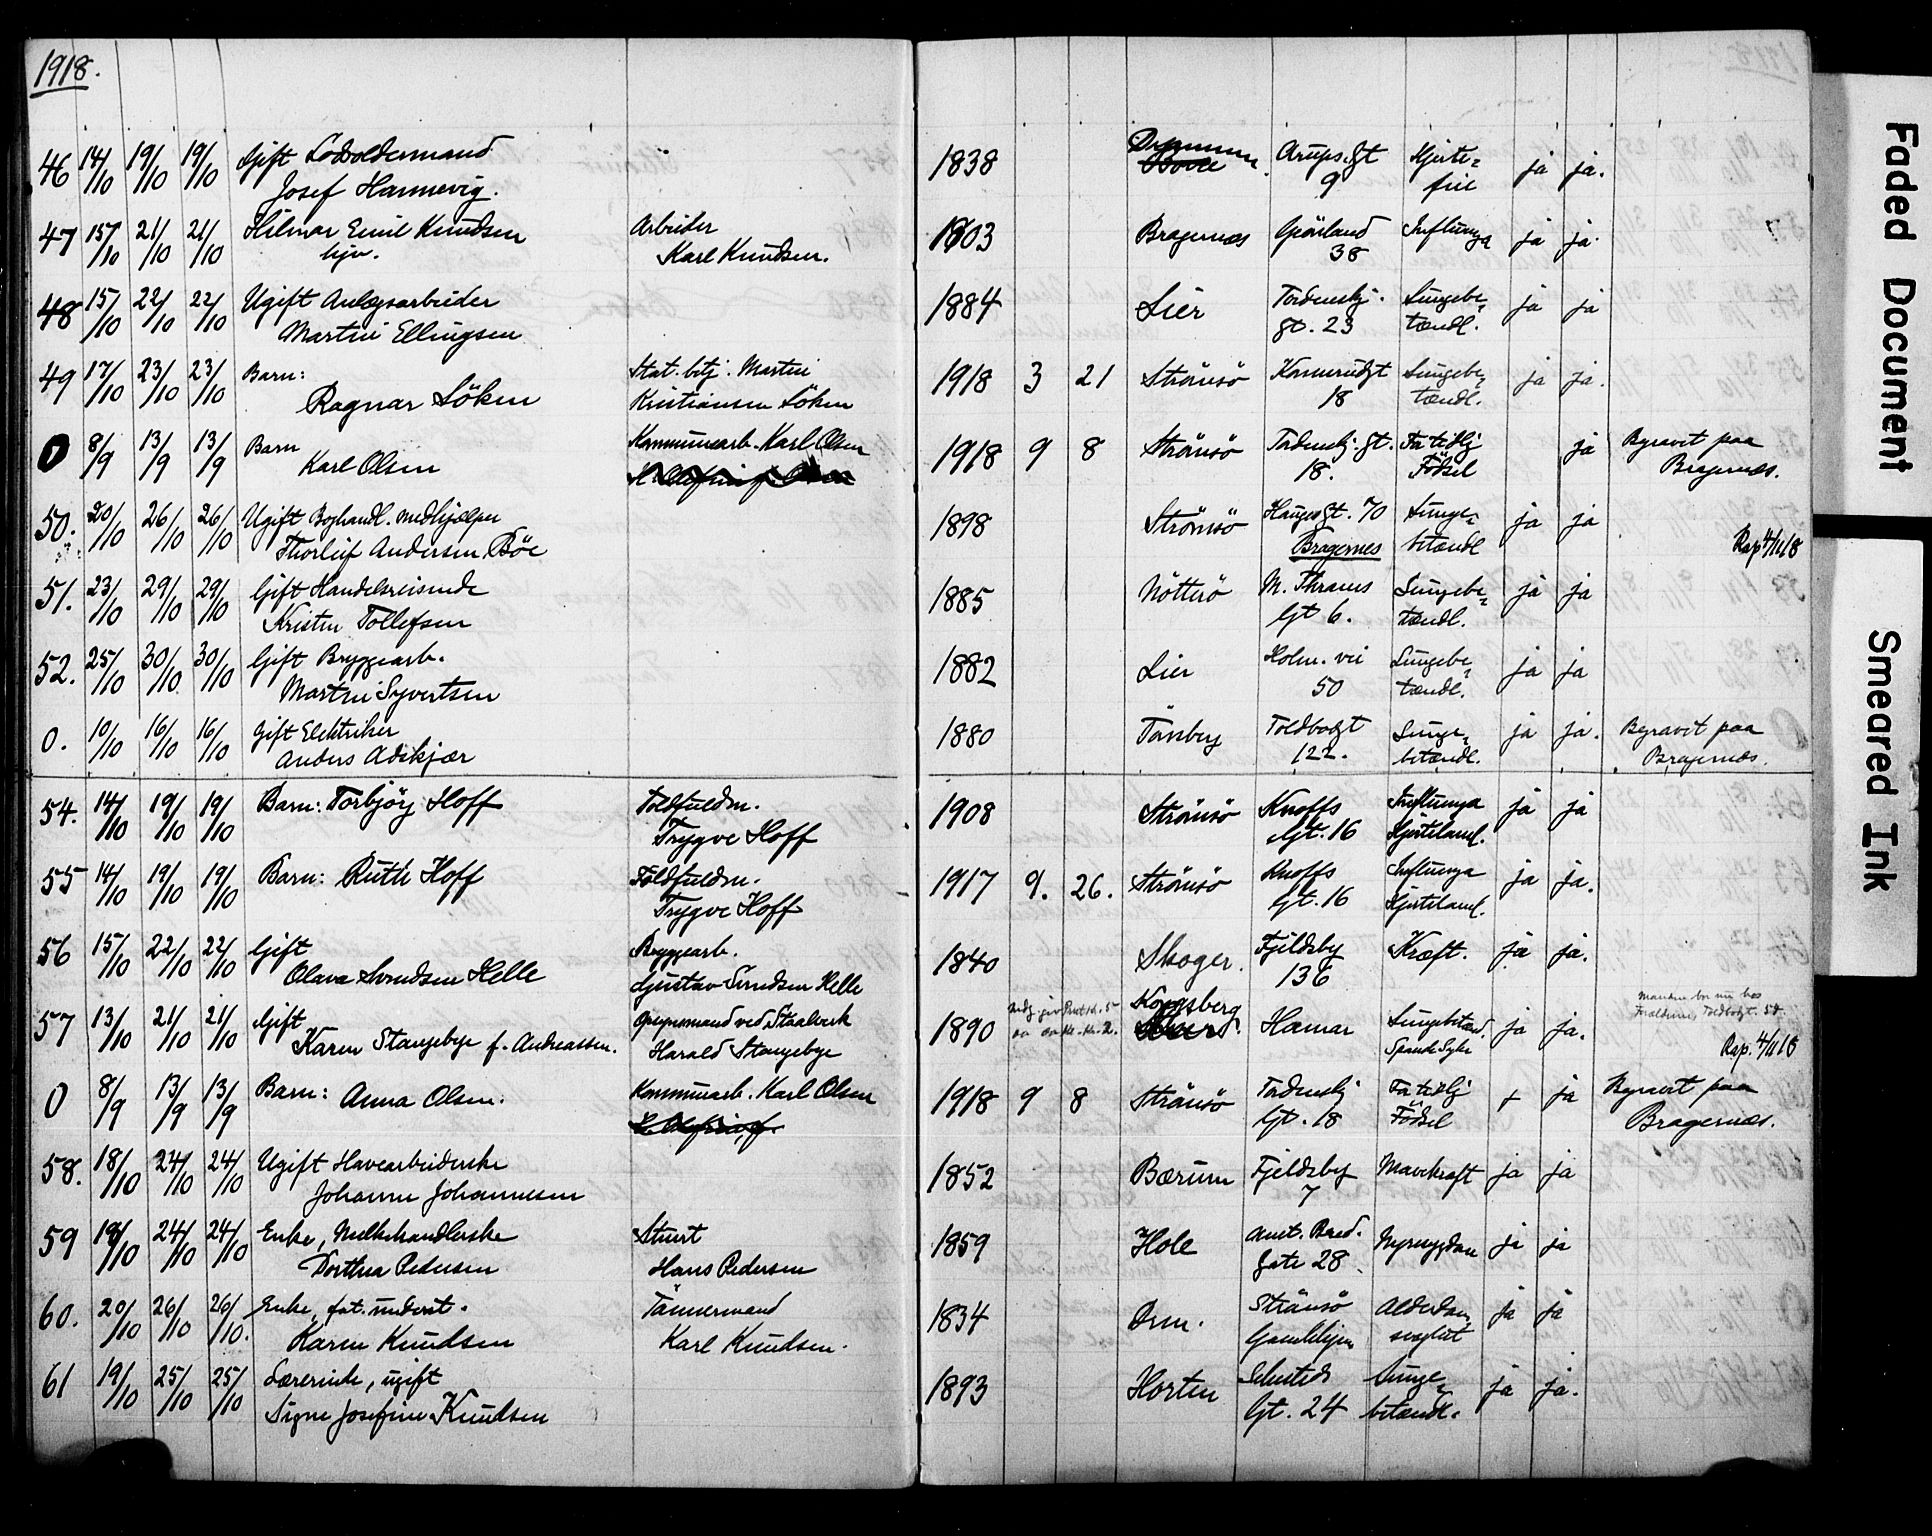 1918.
46 14/10 19/10 19/10 Gift Lodsoldermand 1838 Drammen Arups.gt Hjerte=
Josef Hannevig. 9 feil ja ja.
47 15/10 21/10 21/10 Hilmar Emil Knudsen Arbeider 1903 Bragernæs Grönland Influenza ja ja.
hjv. Karl Knudsen. 38
48 15/10 22/10 22/10 Ugift Anlægsarbeider 1884 Lier Tordenskj. Lungebe= ja ja
Martin Ellingsen gt. 23 tændl.
49 17/10 23/10 23/10 Barn: Stat. btj. Martin 1918 3 21 Strömsö Konnerudgt Lungebe= ja ja.
Ragnar Söken Kristiansen Söken 18 tændl.
0 8/9 13/9 13/9 Barn Kommunearb. Karl Olsen 1918 9 8 Strömsö Tordenskj. gt. For tidlig ja Begravet paa
Karl Olsen 18. Födsel Bragernæs.
50. 20/10 26/10 26/10 Ugift Boghandl. medhjælper 1898 Strömsö Haugesgt. 70 Lunge= ja ja
Thorleif Andersen Böe Bragernes betændl Rap 4/11 18
51. 23/10 29/10 29/10 Gift Handelsreisende 1885 Nötterö M. Thranes Lungebe= ja ja
Kristen Tollefsen Gt 6. tændl.
52. 25/10 30/10 30/10 Gift Bryggearb. 1882 Lier Holm. vei Lungebe= ja ja
Martin Syvertsen 50 tændl.
0. 10/10 16/10 16/10 Gift Elektriker 1880 Tönsberg Toldbodgt Lunge= ja ja. Begravet paa
Anders Adskjær 122. betændl. Bragernæs.
54. 14/10 19/10 19/10 Barn: Torbjörg Hoff Toldfuldm. 1908 Strömsö Knoffs Influenza ja ja
Trygve Hoff Gt. 16 Hjertelaml.
55 14/10 19/10 19/10 Barn: Ruth Hoff Toldfuldm. 1917 9. 26. Strömsö Knoffs Influenza ja ja.
Trygve Hoff Gt. 16 Hjertelaml.
56 15/10 22/10 22/10 Gift Bryggearb. 1840 Skoger. Fjeldsby Kræft. ja ja.
Olava Svendsen Helle Gustav Svendsen Helle 136
57 13/10 21/10 21/10 Gift ved Staalverk 1890 Kongsberg Hamar Lungebetænd. ja ja.
Karen Stangebye f. Andreassen. Harald Stangebye Spanske Syke Rap. 4/11 18
Manden bor nu hos
Forældrene, Toldbodgt. 50.
0 8/9 13/9 13/9 Barn: Anna Olsen. Kommunearb. Karl Olsen 1918 9 8 Strömsö Tordenskj For tidlig + ja Begravet paa
Gt. 18 Födsel Bragernæs.
58. 18/10 24/10 24/10 Ugift Havearbeiderske 1852 Bærum Fjeldsby Mavekræft ja ja
Johanne Johannesen 7
59 19/10 24/10 24/10 Enke, Melkehandlerske Stuert 1859 Hole Amt. Bred. Nyresygdom ja ja
Dorthea Pedersen Hans Pedersen Gate 28
60. 20/10 26/10 26/10. Enke, fat. underst. Tömmermand 1834 Drm. Strömsö Alderdom ja ja
Karen Knudsen Karl Knudsen. Gamlehjem svaghet
61 19/10 25/10 25/10 Lærerinde, ugift 1893 Horten Schusteds Lunge= ja ja.
Signe Josefine Knudsen Gt. 24 betændl.
Faded Document
Smeared Ink